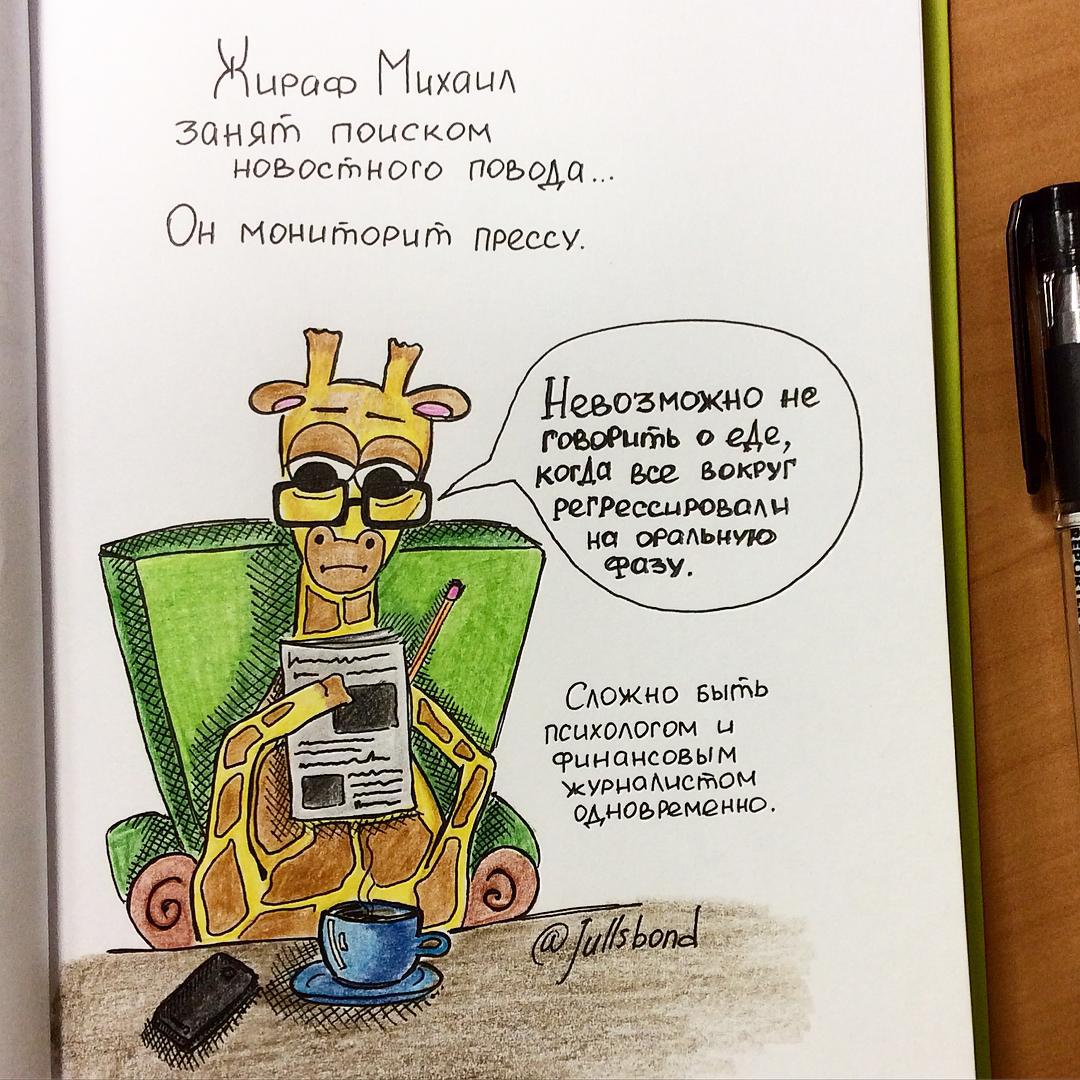 Жираф Михаил
занят поиском
новостного повода...
Он мониторит прессу.
Невозможно не
говорить о еде,
когда все вокруг
регрессировали
на оральную
фазу.
Сложно быть
психологом и
финансовым
журналистом
одновременно.
@Jullsbond